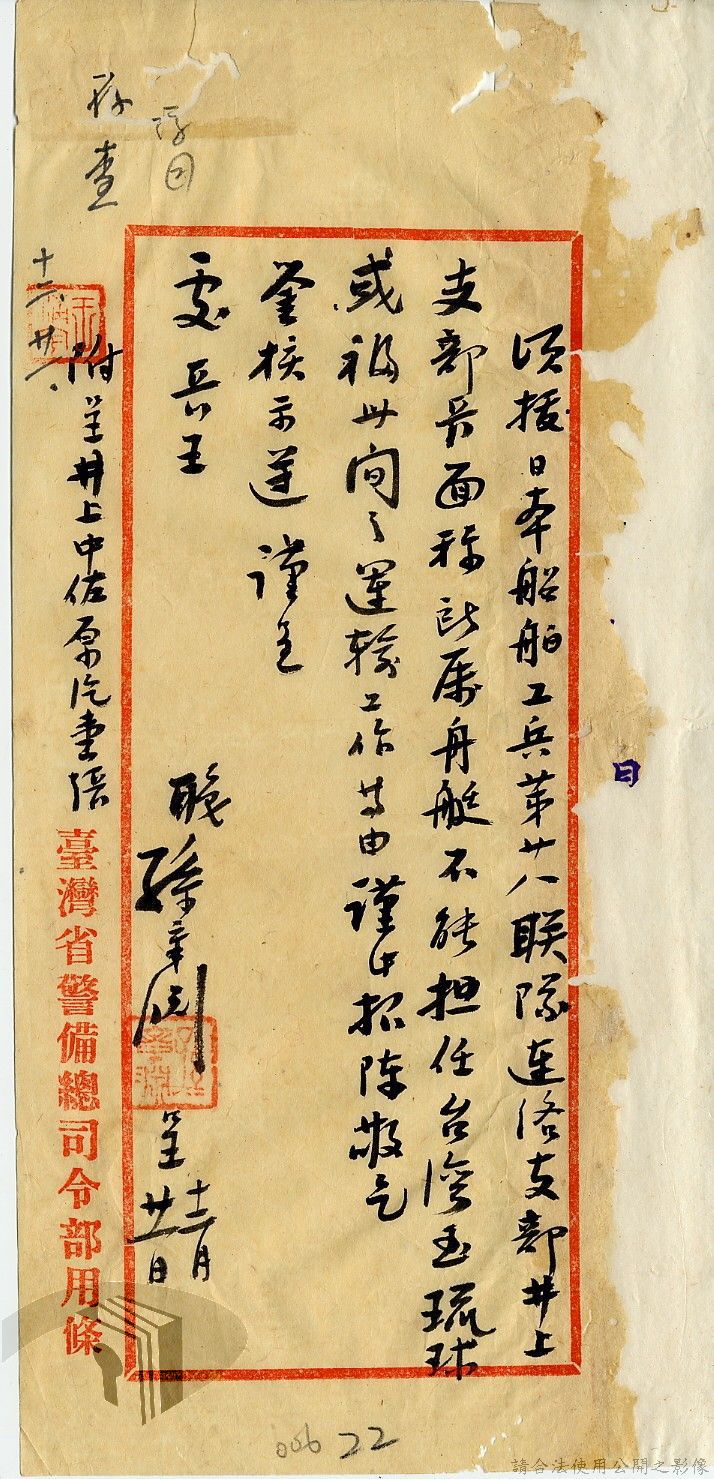 頃接日本船舶工兵第廿八联隊連洛支部井上
支部長面称所属舟艇不能担任台湾至琉球
或福州间之運輸工作等由謹此报陈敬乞
鉴核示遵 謹呈
處長王
職孫章
呈
十二月
廿一日
附呈井上中佐原
臺灣省警備總司令部用條
存查
十二、廿一、
006 22
請合法使用公開之影像